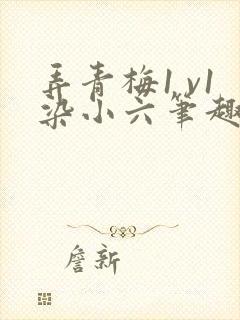 弄青梅1 v1
染小六笔趣
詹新